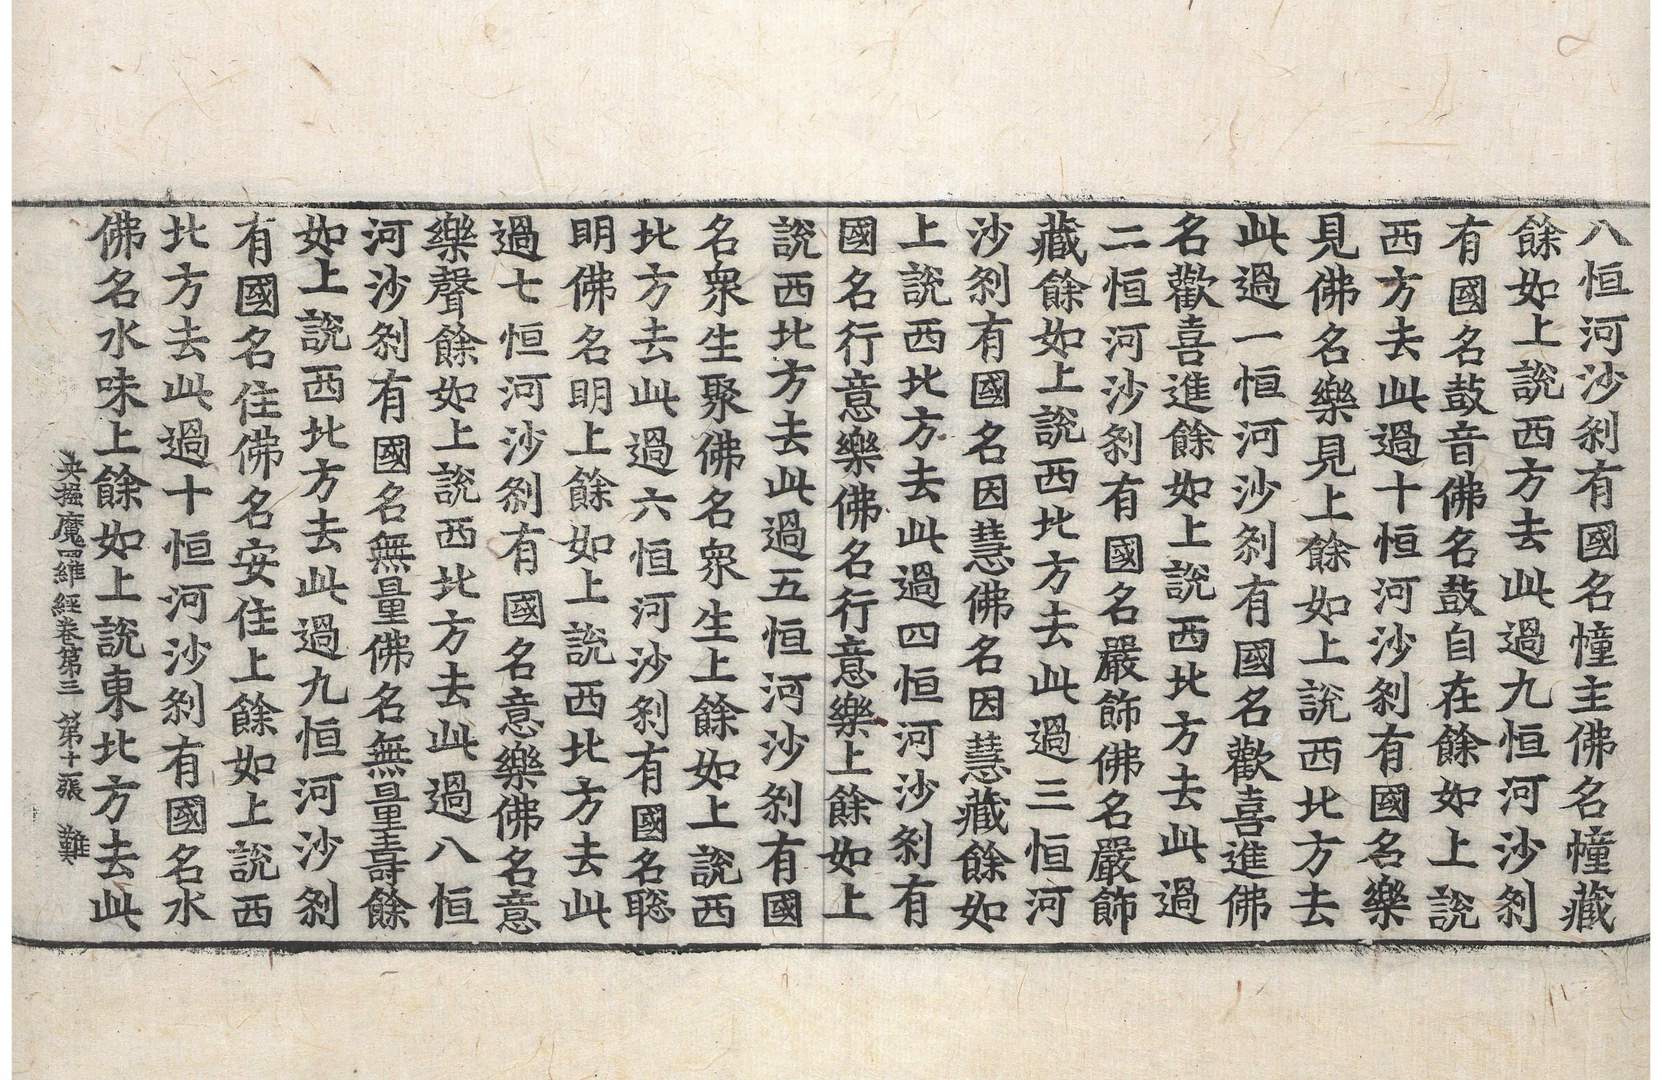 八恒河沙剎有國名幢主佛名幢藏
餘如上說西方去此過九恒河沙剎
有國名鼓音佛名鼓自在餘如上說
西方去此過十恒河沙剎有國名樂
見佛名樂見上餘如上說西北方去
此過一恒河沙剎有國名歡喜進佛
名歡喜進餘如上說西北方去此過
二恒河沙剎有國名嚴飾佛名嚴飾
藏餘如上說西北方去此過三恒河
沙剎有國名因慧佛名因慧藏餘如
上說西北方去此過四恒河沙剎有
國名行意樂佛名行意樂上餘如上
說西北方去此過五恒河沙剎有國
名衆生聚佛名衆生上餘如上說西
北方去此過六恒河沙剎有國名聡
明佛名明上餘如上說西北方去此
過七恒河沙剎有國名意樂佛名意
樂聲餘如上說西北方去此過八恒
河沙剎有國名無量佛名無量壽餘
如上說西北方去此過九恒河沙剎
有國名住佛名安住上餘如上說西
北方去此過十恒河沙剎有國名水
佛名水味上餘如上說東北方去此
央掘魔羅經卷第三 第十張 難